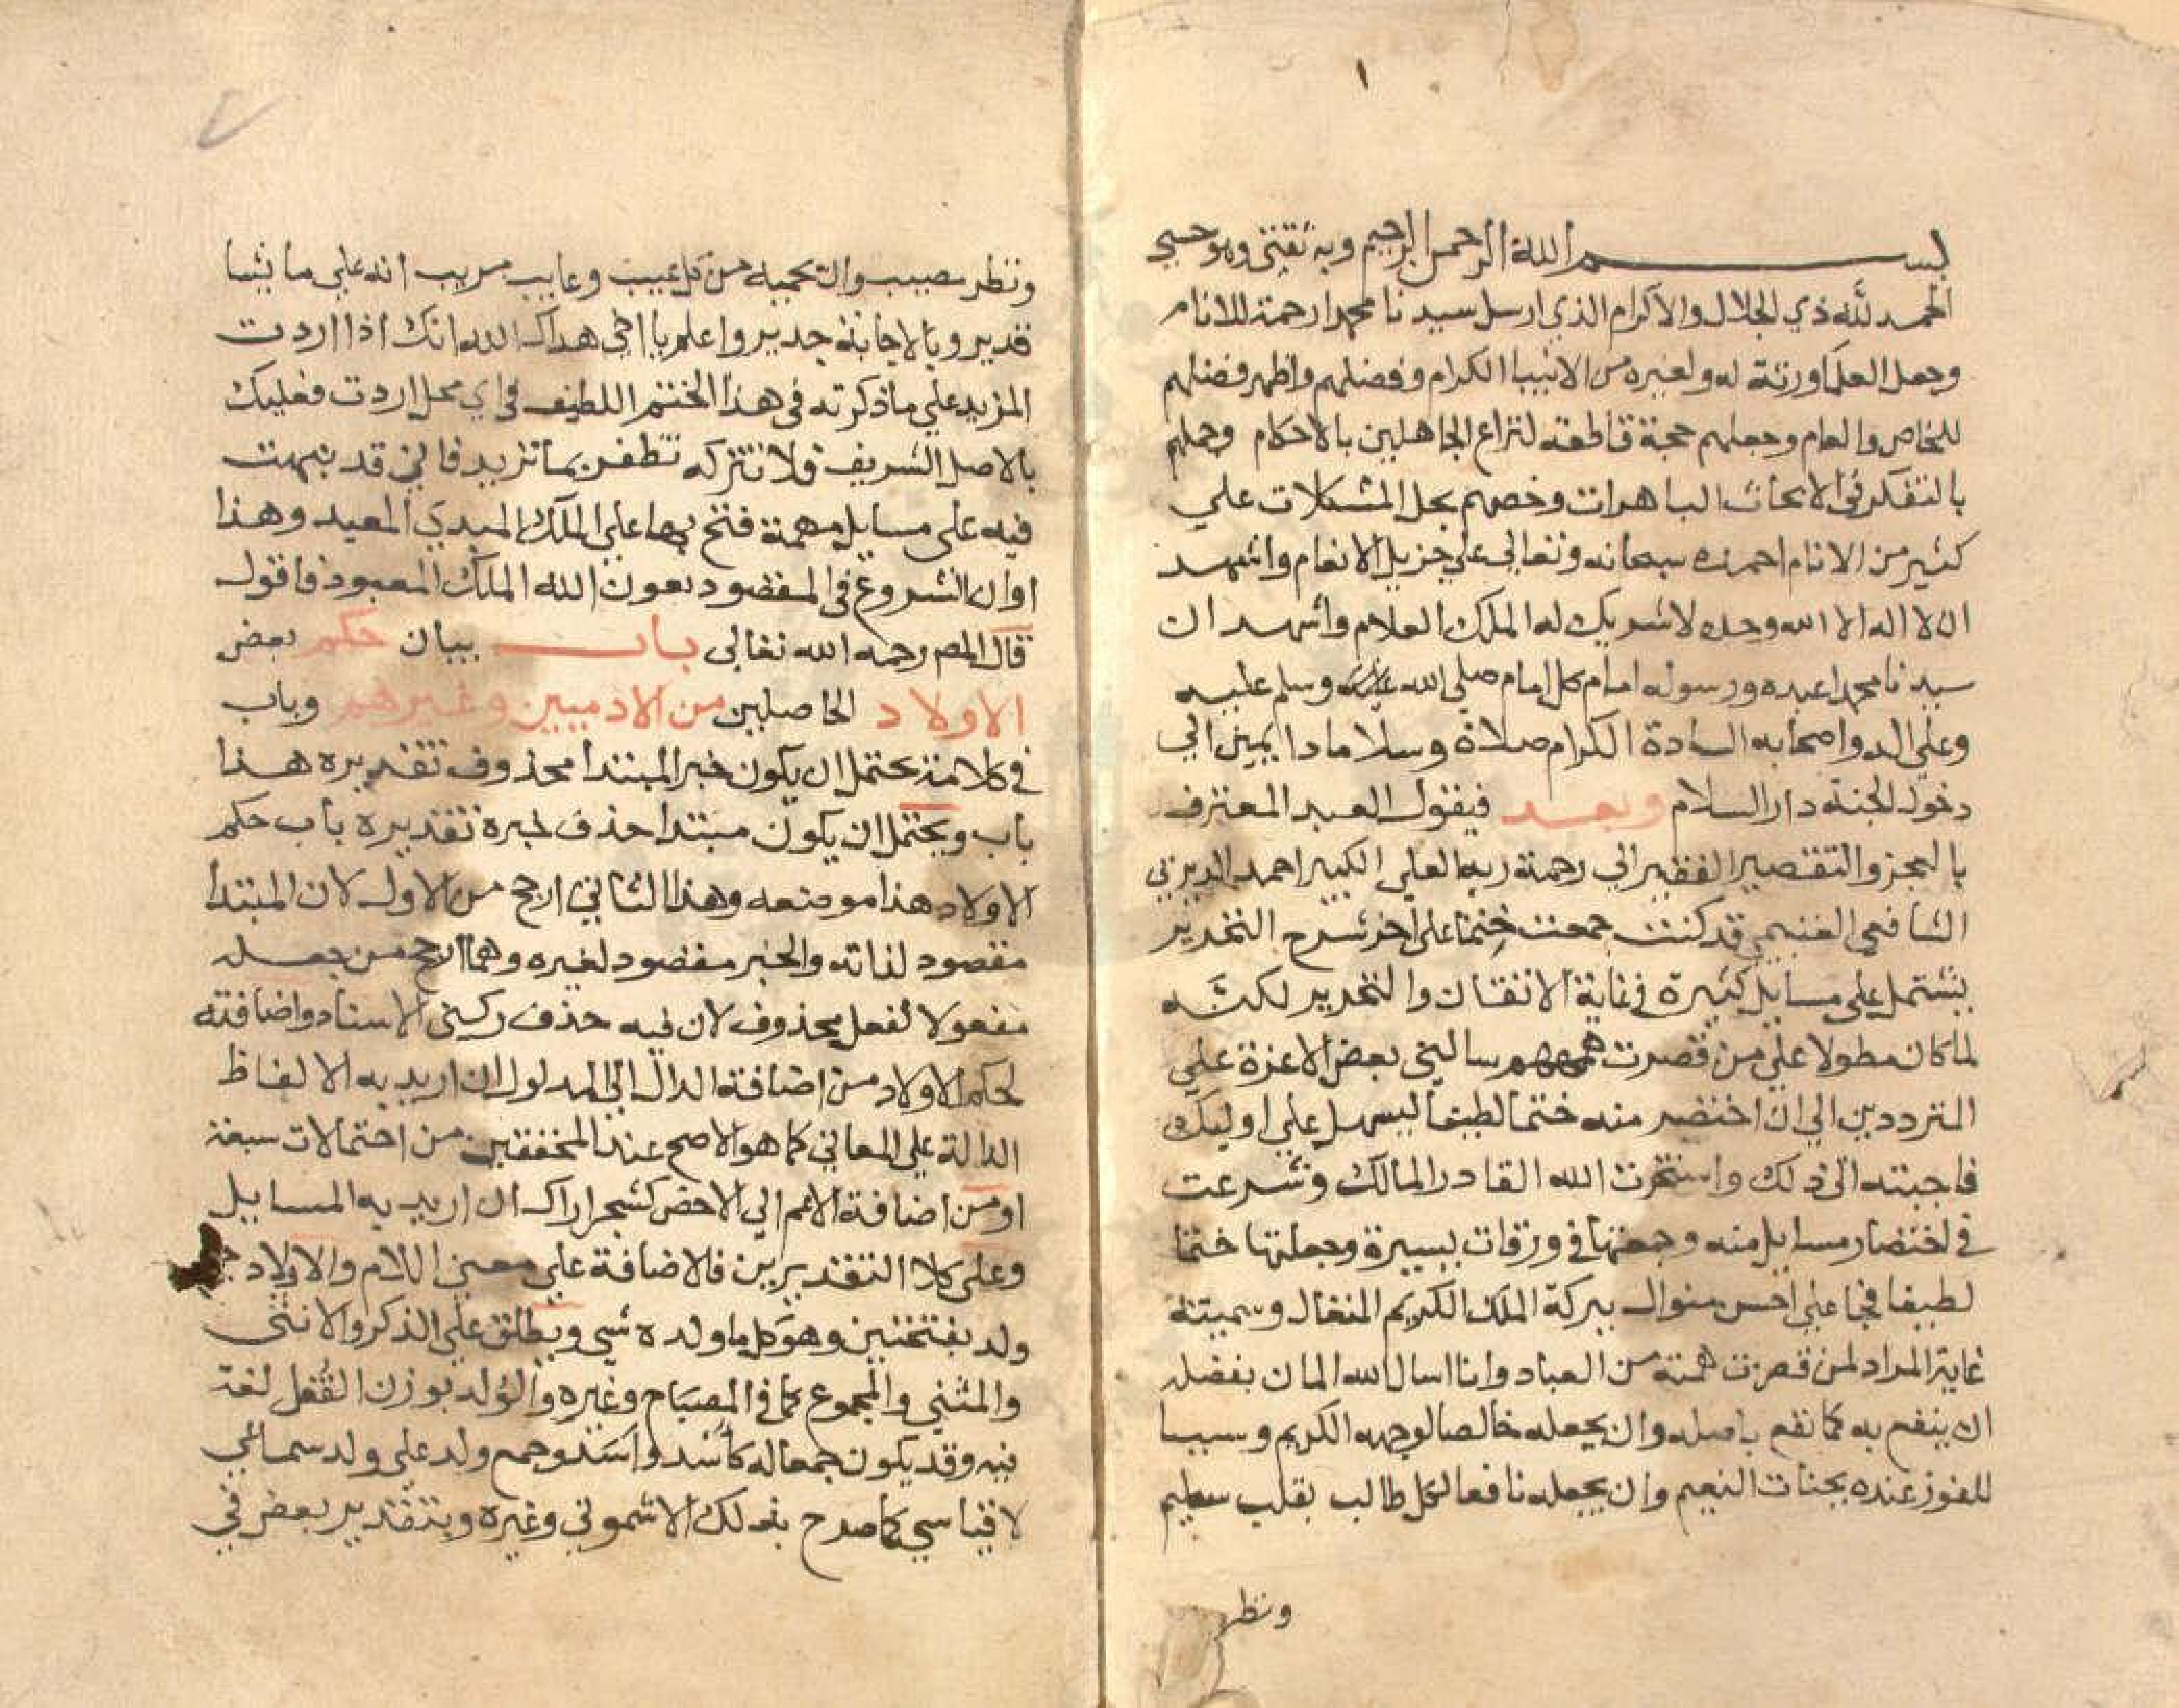 بســـــم الله الرحمن الرحيم وبه ثقتي وهو حسبي
الحمد لله ذي الجلال والاكرام الذي ارسل سيدنا محمدا رحمة للانام
وجعل العلما ورثة له ولغيره من الانبيا الكرام وفضلهم واظهر فضلهم
للخاص والعام وجعلهم حجة قاطعة لنزاع الجاهلين بالاحكام وحملهم
بالتفكر في الابحاث الباهرات وخصهم بحل المشكلات علي
كثير من الانام احمده سبحانه وتعالي علي جزيل الانعام واشهد
ان لا اله الا الله وحده لا شريك له الملك العلام واشهد ان
سيدنا محمدا عبده ورسوله امام كل امام صلي الله وسلم عليه
وعلي اله واصحابه السادة الكرام صلاة وسلاما دايمين الي
دخول الجنة دار السلام وبعــد فيقول العبد المعترف
بالعجز والتقصير الفقير الي رحمة ربه العلي الكبير احمد الديربي
الشافعي الغنيمي قد كنت جمعت ختما علي اخر شرح التحرير
يشتمل علي مسايل كثيرة في غاية الاتقان والتحرير لكنه
لما كان مطولا علي من قصرت هممهم سالني بعض الاعزة علي
المترددين الي ان اختصر منه ختما لطيفا ليسهل علي اوليك
فاجبته الي ذلك واستخرت الله القادر المالك وشرعت
في اختصار مسايل منه وجمعتها في ورقات يسيرة وجعلتها ختما
لطيفا فجا علي احسن منوال ببركة الملك الكريم المتعال وسميته
غاية المراد لمن قصرت همته من العباد وانا اسال الله المان بفضله
ان ينفع به كما نفع باصله وان يجعله خالصا لوجهه الكريم وسببا
للفوز عنده بجنات النعيم وان يجعله نافعا لكل طالب بقلب سليم
ونظر
ونظر مصيب وان يحميه من كل عيب وعايب مريب انه علي ما يشا
قدير وبالاجابة جدير واعلم يا اخي هداك الله انك اذا اردت
المزيد علي ما ذكرته في هذا الختم اللطيف في اي محل اردت فعليك
بالاصل الشريف فلا تتركه تظفر بما تريد فاني قد نبهت
فيه علي مسايل مهمة فتح بها علي الملك المبدي المعيد وهذا
اوان الشروع في المقصود بعون الله الملك المعبود فاقول
قال المص رحمه الله تعالي بـاب بيان حكم بعض
الاولاد الحاصلين من الادميين وغيرهم وباب
في كلامه يحتمل ان يكون خبرا لمبتدا محذوف تقديره هذا
باب ويحتمل ان يكون مبتدا حذف خبره تقديره باب حكم
الاولاد هذا موضعه وهذا الثاني ارجح من الاول لان المبتدا
مقصود لذاته والخبر مقصود لغيره وهما ارجح من جعله
مفعولا لفعل محذوف لان فيه حذف ركني الاسناد واضافته
لحكم الاولاد من اضافة الدال الي المدلول ان اريد به الالفاظ
الدالة علي المعاني كما هو الاصح عند المحققين من احتمالات سبعة
او من اضافة الاعم الي الاخص كشجر اراك ان اريد به المسايل
وعلي كلا التقديرين فالاضافة علي معني اللام والاولاد
ولد بفتحتين وهو كل ما ولده شي ويطلق علي الذكر والانثي
والمثني والمجموع كما في المصباح وغيره والوُلد بوزن القُفل لغة
فيه وقد يكون جمعا له كاُسْد واَسَد وجمع ولد علي ولد سماعي
لا قياسي كما صرح بذلك الاشموني وغيره وبتقدير بعض في